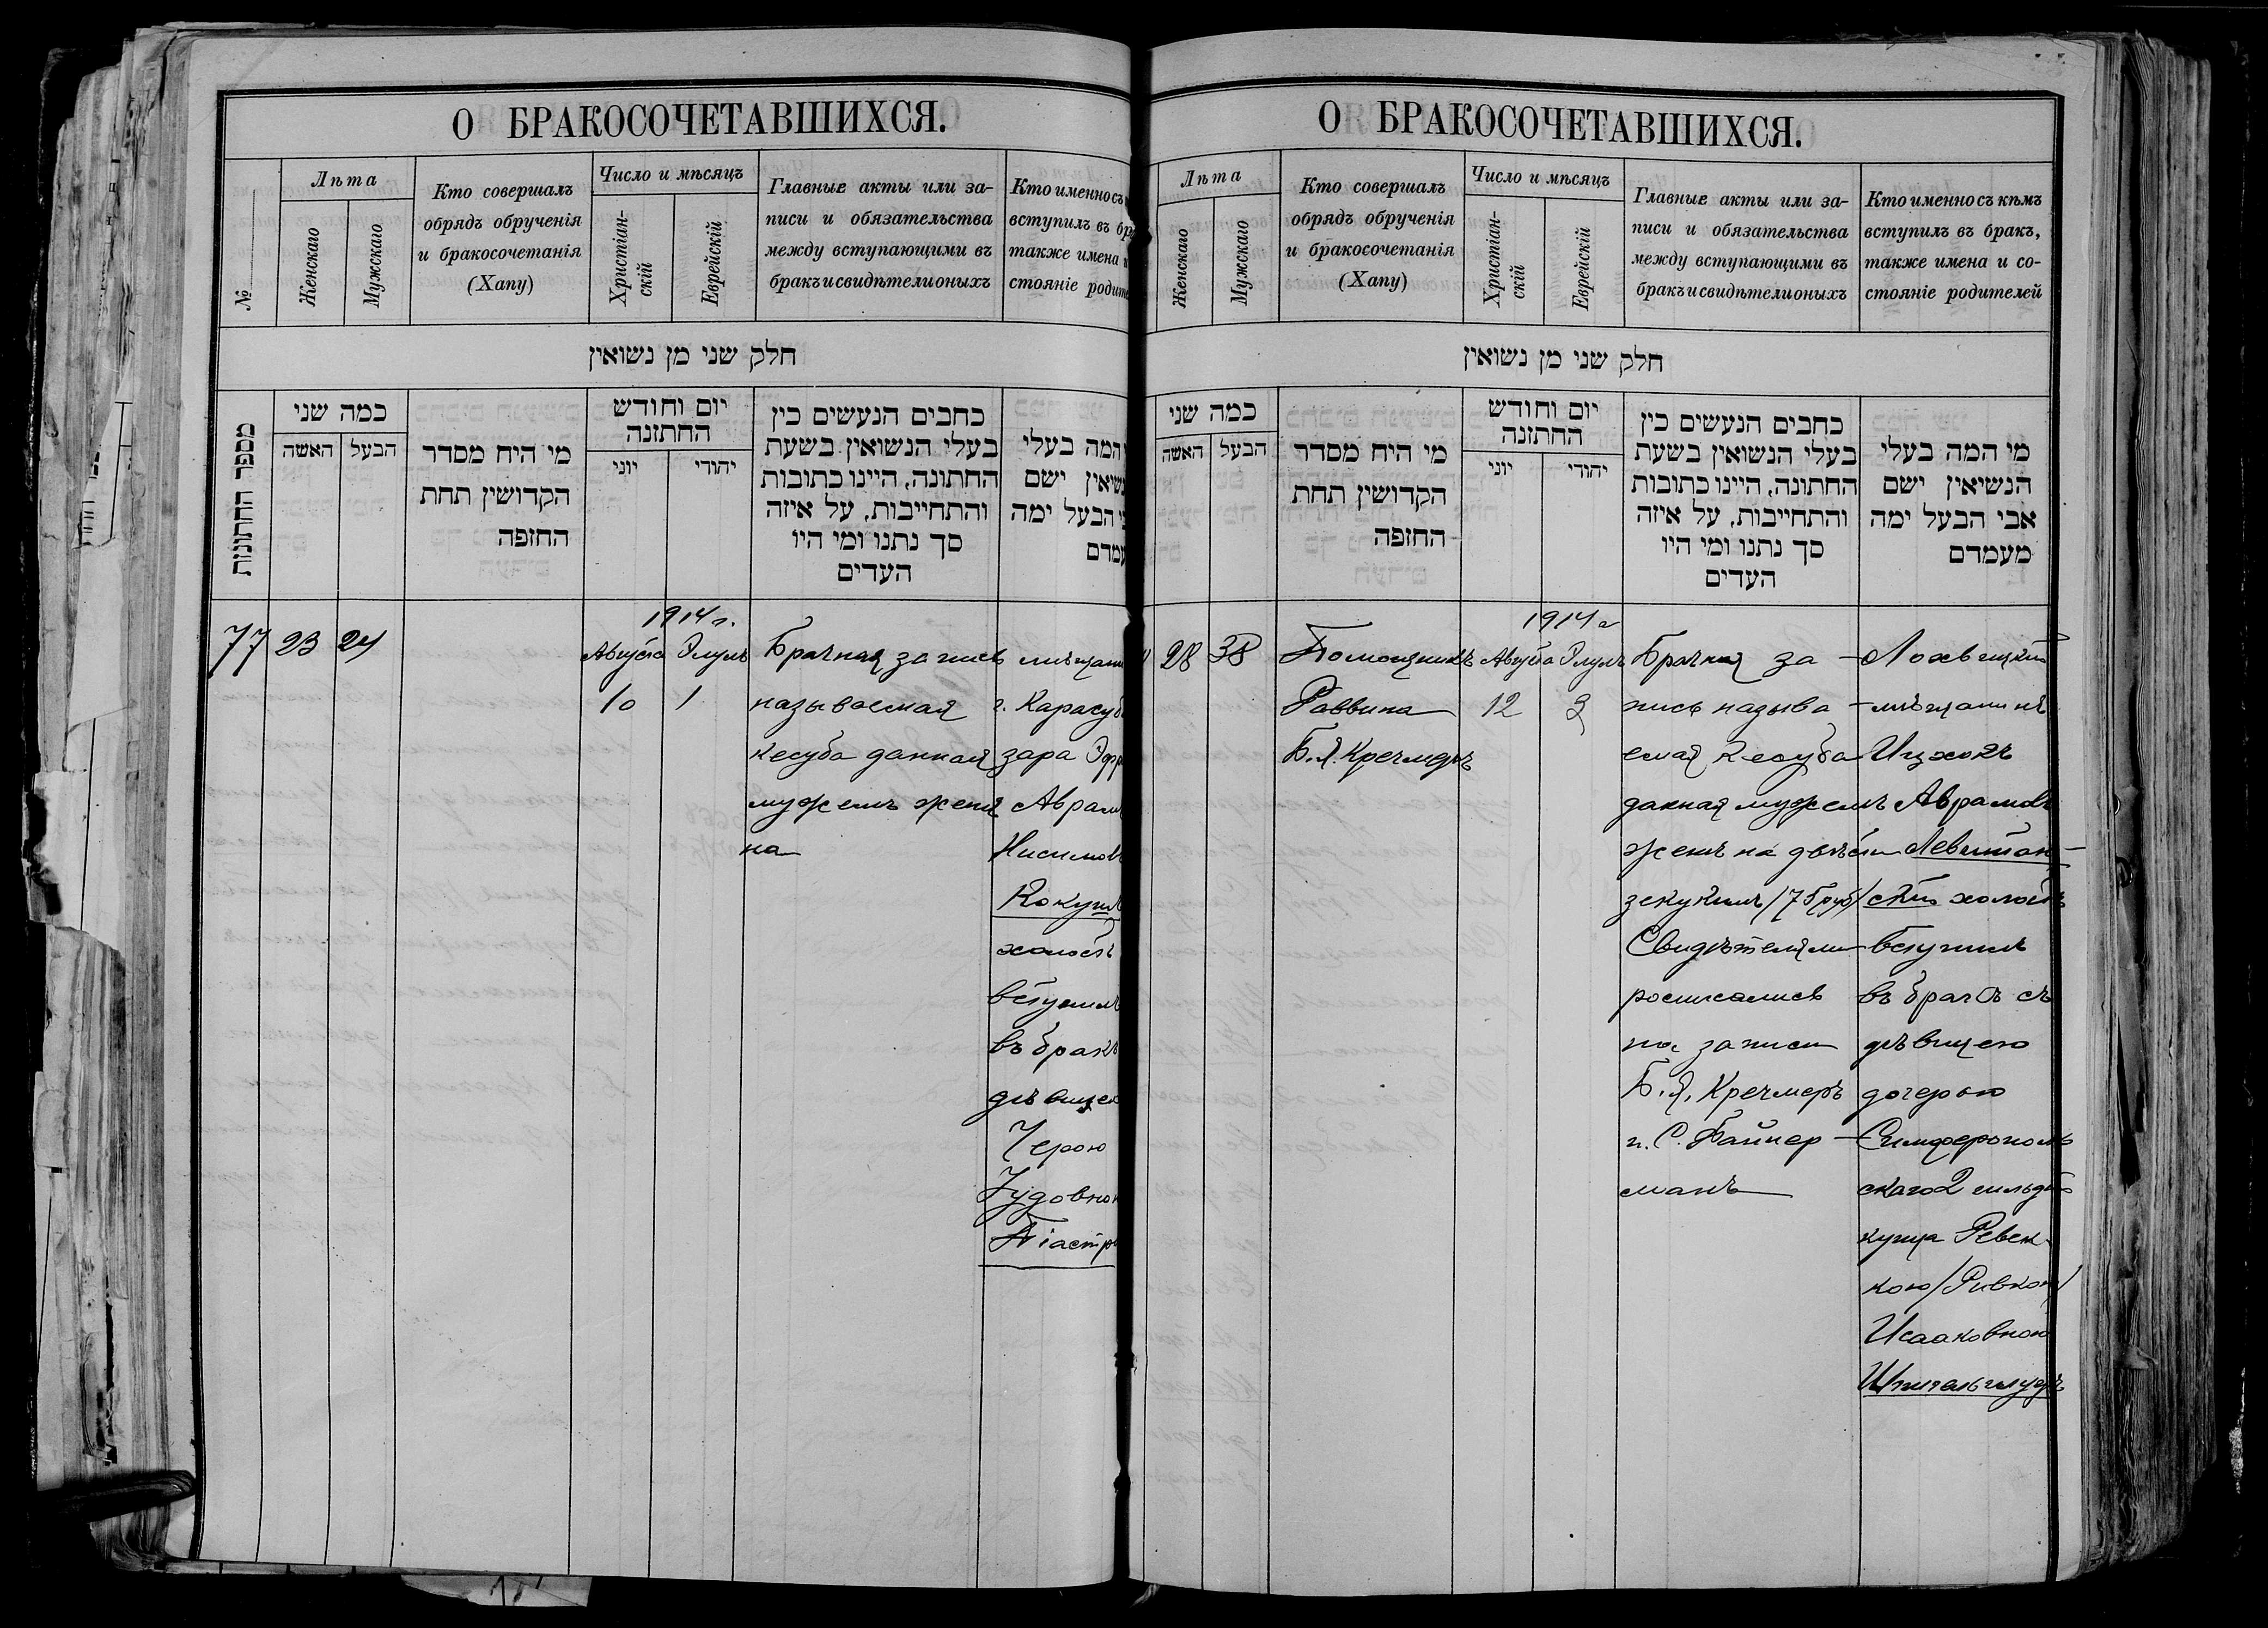 О БРАКОСОЧЕТАВШИХСЯ.
№
Лѣта
Женскаго
Мужскаго
Кто совершалъ
обрядъ обрученія
и бракосочетанія
(Хапу)
Число и мѣсяцъ
Христіан-
скій
Еврейскій
Главные акты или за-
писи и обязательства
между вступающими въ
бракъ и свидѣтели оныхъ
Кто именно съ
вступилъ въ бр
также имена и
стояніе родите
חלק שני מן נשואין
מספר החתונות
כמה שני
האשה
הבעל
מי היח מסדר
הקדושין תחת
החזפה
יום וחודש
החתזנה
יוני
יהודי
כחבים הנעשים כין
בעלי הנשואין בשעת
החתונה, היינו כתובות
והתחייבות, על איזה
סך נתנו ומי היו
העדים
המה בעלי
נשיאין ישם
הבעל ימה
עמדם
77
23
24
1914 г.
Августа
10
Элулъ
1
Брачная запись
называемая
кесуба данная
мужемъ женѣ
на
мѣщани
г. Карасуб
зара Эфр
Аврам
Нисимовъ
Кокуш
холостъ
вступилъ
въ бракъ
дѣвицею
Черою
Іудовною
Піастр
О БРАКОСОЧЕТАВШИХСЯ.
Лѣта
Женскаго
Мужскаго
Кто совершалъ
обрядъ обрученія
и бракосочетанія
(Хапу)
Число и мѣсяцъ
Христіан-
скій
Еврейскій
Главные акты или за-
писи и обязательства
между вступающими въ
бракъ и свидѣтели оныхъ
Кто именно съ кѣмъ
вступилъ въ бракъ,
также имена и со-
стояніе родителей
חלק שני מן נשואין
כמה שני
האשה
הבעל
מי היח מסדר
הקדושין תחת
החזפה
יום וחודש
החתזנה
יוני
יהודי
כחבים הנעשים כין
בעלי הנשואין בשעת
החתונה, היינו כתובות
והתחייבות, על איזה
סך נתנו ומי היו
העדים
מי המה בעלי
הנשיאין ישם
אבי הבעל ימה
מעמדם
28
38
Помощникъ
Раввина
Б.Я. Кречмеръ
1914 г
Августа
12
Элулъ
3
Брачная за-
пись называ-
емая кесуба
данная мужемъ
женѣ на двѣсти
зекукимъ /75 руб/
Свидѣтелями
росписались
на записи
Б.Я. Кречмеръ
и С. Файнер-
манъ
Лохвицкій
мѣщанинъ
Ицхокъ
Аврамовъ
Левитан-
скій холостъ
вступилъ
въ бракъ съ
дѣвицею
дочерью
Симферополь
скаго 2 гильдіи
купца Ревек-
кою /Ривкою/
Исааковною
Шпигельглузъ